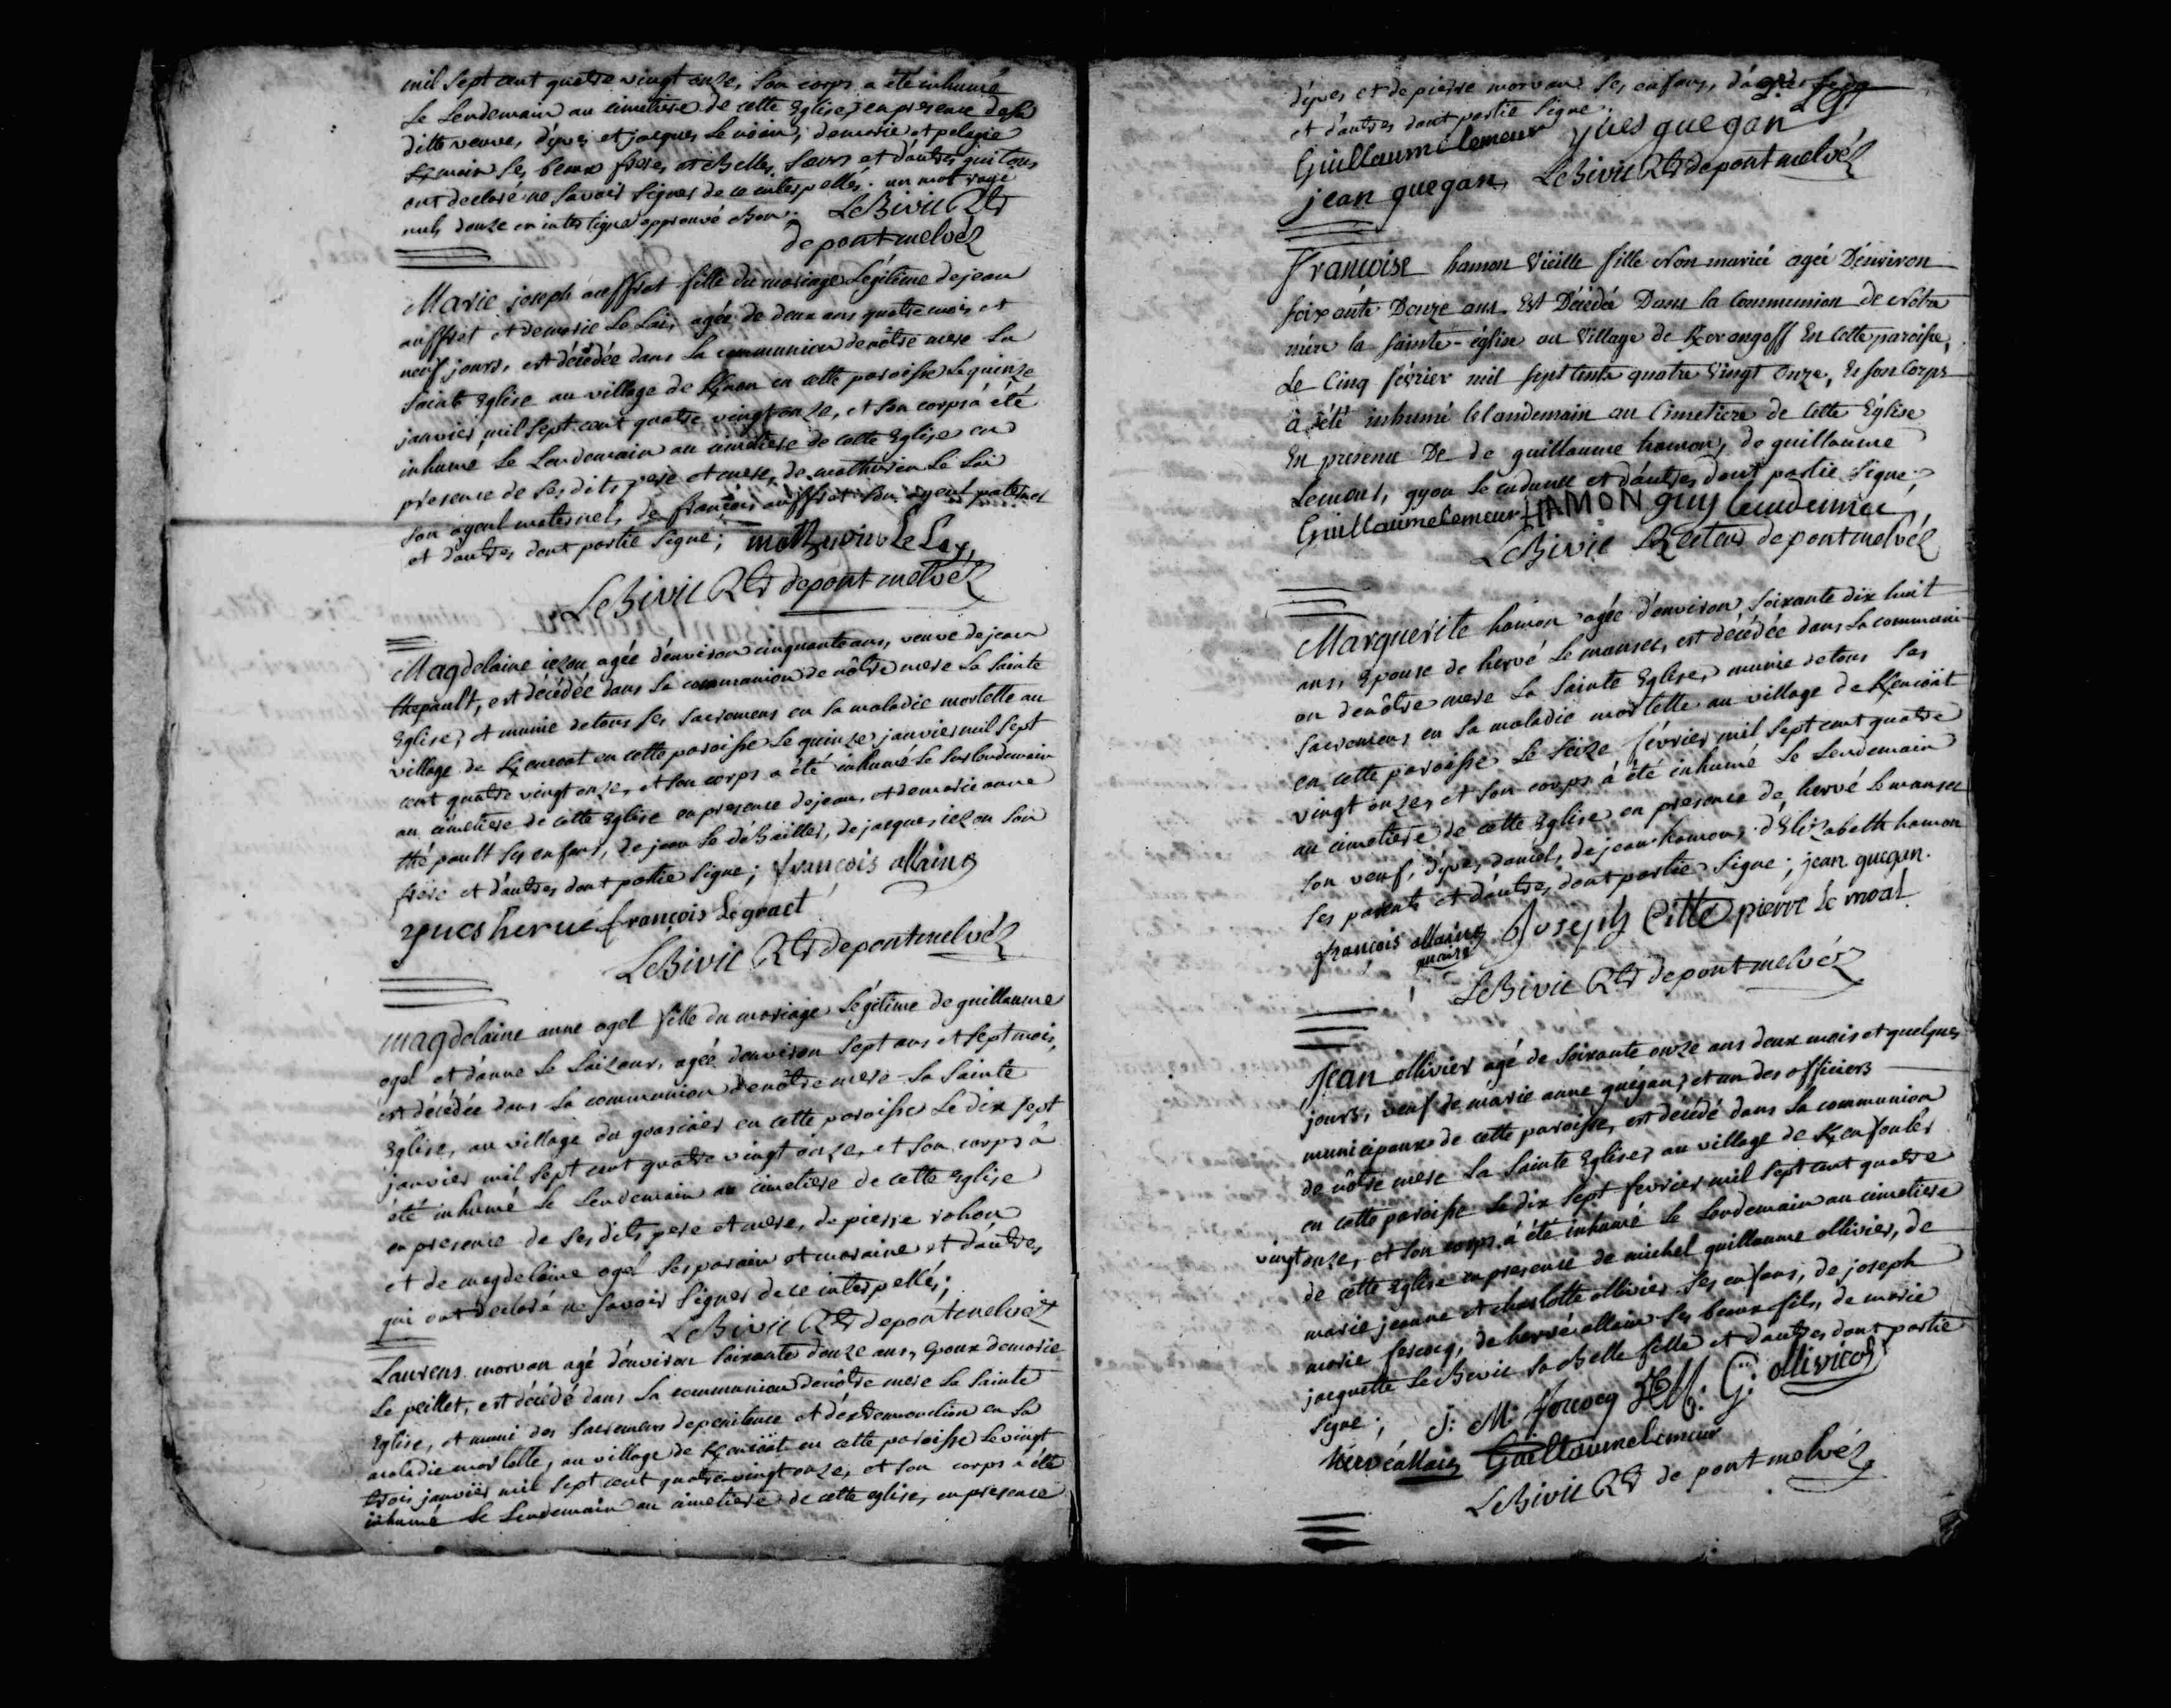 mil sept cent quatre vingt onze, son corps a été inhumé
le lendemain au cimetiere de cette Eglise, en presence de sa
ditte veuve, d'yves et jacques le noan, de marie et pelagie
ses beaux freres et belles sœurs et d'autres qui tous
ont declaré ne savoir signer de ce interpellés. un mot rayé
nul, douze en interligne approuvé bon. LeBivic Rtr
de pontmelvéz
Marie joseph auffret fille du mariage Légitime de jean
auffret et de marie Le Lai, agée de deux ans quatre mois et
neuf jours, est décédée dans la communion de nôtre mere la
sainte Eglise au village de en cette paroisse le quinze
janvier mil sept cent quatre vingt onze, et son corps a été
inhumé le lendemain au cimetiere de cette Eglise en
presence de ses dits pere et mere, de mathurin Le Lai
son ayeul maternel, de françois auffret son ayeul paternel
et d'autres dont partie signe; mathurin Le Lay,
LeBivic Rtr de pontmelvéz
Magdelaine iezou agée d'environ cinquante ans, veuve de jean
thepault, est décédée dans la communion de nôtre mere la sainte
Eglise, et munie de tous ses sacremens en sa maladie mortelle au
village de en cette paroisse le quinze janvier mil sept
cent quatre vingt onze, et son corps a été inhumé le surlendemain
au cimetiere de cette Eglise en presence de jean, et de marie anne
thépault ses enfans, de jean le , de jacques iezou son
frere et d'autres dont partie signe; françois allain
yves hervé françois Le graet
LeBivic Rtr de pontmelvéz
magdelaine anne ogel fille du mariage Légitime de guillaume
ogel et d'anne le Saizour, agée d'environ sept ans et sept mois,
est décédée dans la communion de nôtre mere la sainte
Eglise, au village du en cette paroisse le dix sept
janvier mil sept cent quatre vingt onze, et son corps a
été inhumé le lendemain au cimetiere de cette Eglise
en presence de ses dits pere et mere, de pierre rohou
et de magdelaine ogel ses parain et maraine et d'autres
qui ont declaré ne savoir signer de ce interpellés;
LeBivic Rtr de pontmelvéz
Laurens morvan agé d'environ soixante douze ans, Epoux de marie
Le peillet, est décédé dans la communion de nôtre mere la sainte
Eglise, et muni des sacremens de penitence et d'extremonction en sa
maladie mortelle, au village de en cette paroisse le vingt
trois janvier mil sept cent quatre vingt onze, et son corps a été
inhumé le lendemain au cimetiere de cette eglise, en presence
d'yves et de pierre morvan ses enfans,
et d'autres dont partie signe.
Guillaume lemeur yves guegan
jean guegan, LeBivic Rtr de pontmelvéz
Françoise hamon vieille fille non mariée agée D'environ
soixante Douze ans Est Décédée Dans la Communion de Notre
mère la sainte-église au village de Kerangoff En Cette paroisse,
Le Cinq février mil sept cents quatre vingt onze, Et son Corps
a été inhumé le landemain au Cimetiere de Cette Église
En presence De de guillaume hamon, de guillaume
Lemeur, gyon le cudenec et d'autres dont partie signe.
Guillaume lemeur HAMON guy
LeBivic Recteur de pontmelvéz
Marguerite hamon agée d'environ soixante dix huit
ans, Epouse de hervé le manser, est décédée dans la communi-
on de nôtre mere la sainte Eglise, munie de tous ses
sacremens en sa maladie mortelle au village de
en cette paroisse le seize février mil sept cent quatre
vingt onze, et son corps a été inhumé le lendemain
au cimetiere de cette Eglise en presence de hervé le manser
son veuf, d'yves daniel, de jean hamon, d'Elizabeth hamon
ses parents et d'autres dont partie signe; jean guegan.
françois allain Joseph Citte pierre Le moal
LeBivic Rtr de pontmelvéz
Jean ollivier agé de soixante onze ans deux mois et quelques
jours, veuf de marie anne guégan, et un des officiers
municipaux de cette paroisse, est décédé dans la communion
de nôtre mere la sainte Eglise, au village de
en cette paroisse le dix sept fevrier mil sept cent quatre
vingt onze, et son corps a été inhumé le lendemain au cimetiere
de cette Eglise en presence de michel guillaume ollivier, de
marie jeanne et charlotte ollivier ses enfans, de joseph
marie fercoq, de hervé allain ses beaux fils, de marie
jacquette le Bivic sa belle fille et d'autres dont partie
signe; j: M: fercocq M: G: ollivier
hervé allain Guillaume lemeur
LeBivic Rtr de pontmelvéz